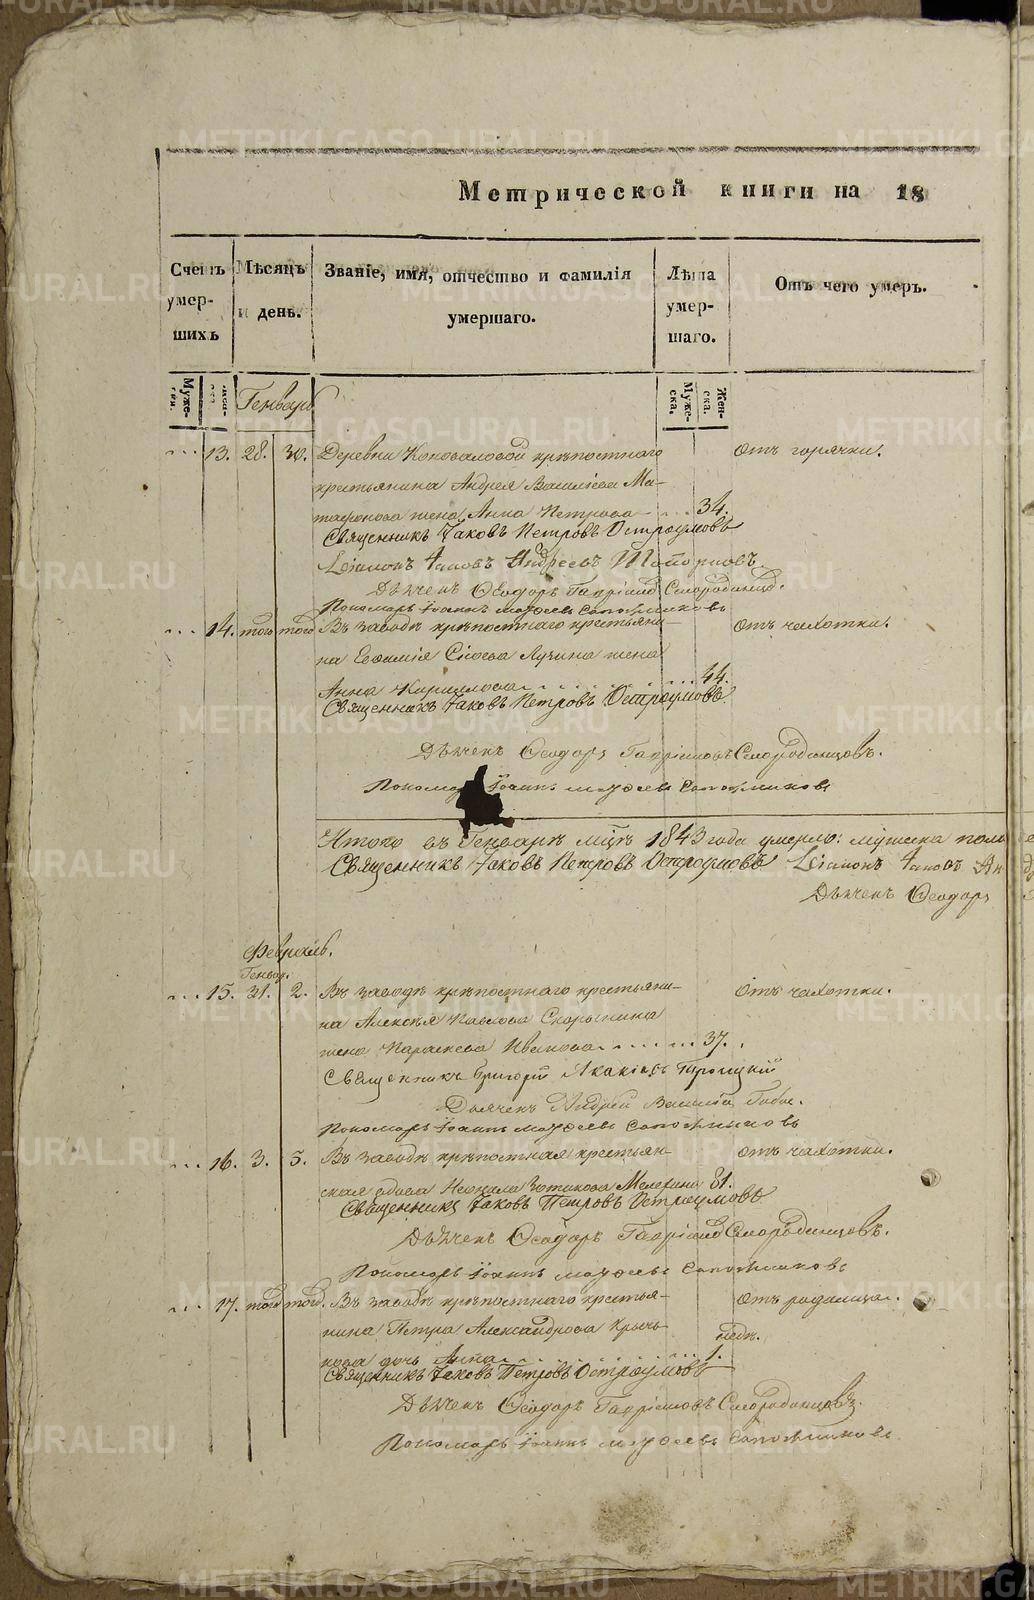 Метрической книги на 18
Счетъ умершихъ
Мѣсяцъ и день.
Званіе, имя, отчество и фамилія умершаго.
Лѣта умершаго.
Отъ чего умеръ.
Мужеска.
Женска.
Генварь
Мужеска.
Женска.
13. 28. 30. Деревни Коноваловой крѣпостнаго Отъ горячки.
крестьянина Андрея Василіева Ма-
тафонова жена Анна Петрова 34.
Священникъ Іаковъ Петровъ Остроумовъ
Діаконъ Іаковъ Андреевъ
Дьячекъ Ѳеодоръ Гавріиловъ Смородинцовъ.
Пономарь Іоаннъ Матѳеевъ Сапожниковъ
14. того того Въ заводѣ крѣпостнаго крестьяни- Отъ чахотки.
на Евфимія Сысоева Лузина жена
Анна Кириллова 44.
Священникъ Іаковъ Петровъ Остроумовъ
Дьячекъ Ѳеодоръ Гавріиловъ Смородинцовъ.
Пономарь Іоаннъ Матѳеевъ Сапожниковъ
Итого въ Генварѣ мцѣ 1843 года умерло: мужеска пола
Священникъ Іаковъ Петровъ Остроумовъ Діаконъ Іаковъ Ан
Дьячекъ Ѳеодоръ
Февраль.
Генвар.
15. 31. 2. Въ заводѣ крѣпостнаго крестьяни- Отъ чахотки.
на Алексѣя Павлова Скорынина
жена Параскева Иванова 37.
Священникъ Григорій Акакіевъ Троицкій
Дьячекъ Андрей Василіев
Пономарь Іоаннъ Матѳеевъ Сапожниковъ
16. 3. 5. Въ заводѣ крѣпостная крестьян- Отъ чахотки.
ская вдова Неонила Зотикова 81.
Священникъ Іаковъ Петровъ Остроумовъ
Дьячекъ Ѳеодоръ Гавріиловъ Смородинцовъ.
Пономарь Іоаннъ Матѳеевъ Сапожниковъ
17. того того. Въ заводѣ крѣпостнаго крестья- Отъ родимца.
нина Петра Александрова недѣ.
дочь Анна 1.
Священникъ Іаковъ Петровъ Остроумовъ
Дьячекъ Ѳеодоръ Гавріиловъ Смородинцовъ.
Пономарь Іоаннъ Матѳеевъ Сапожниковъ
METRIKI.GASO-URAL.RU